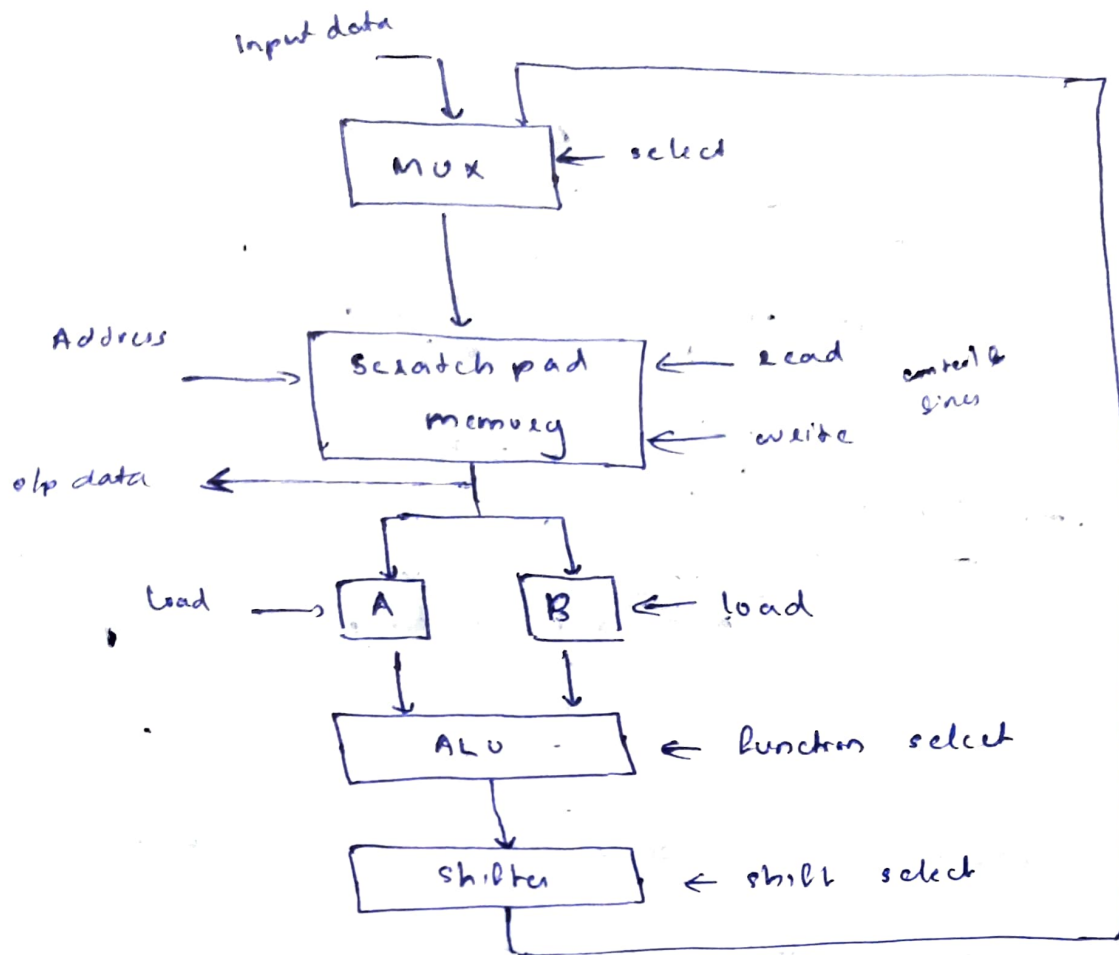 Input data
MUX
select
Address
Scratch pad
memory
read
write
control
lines
o/p data
Load
A
B
load
ALU
function select
Shifter
shift select